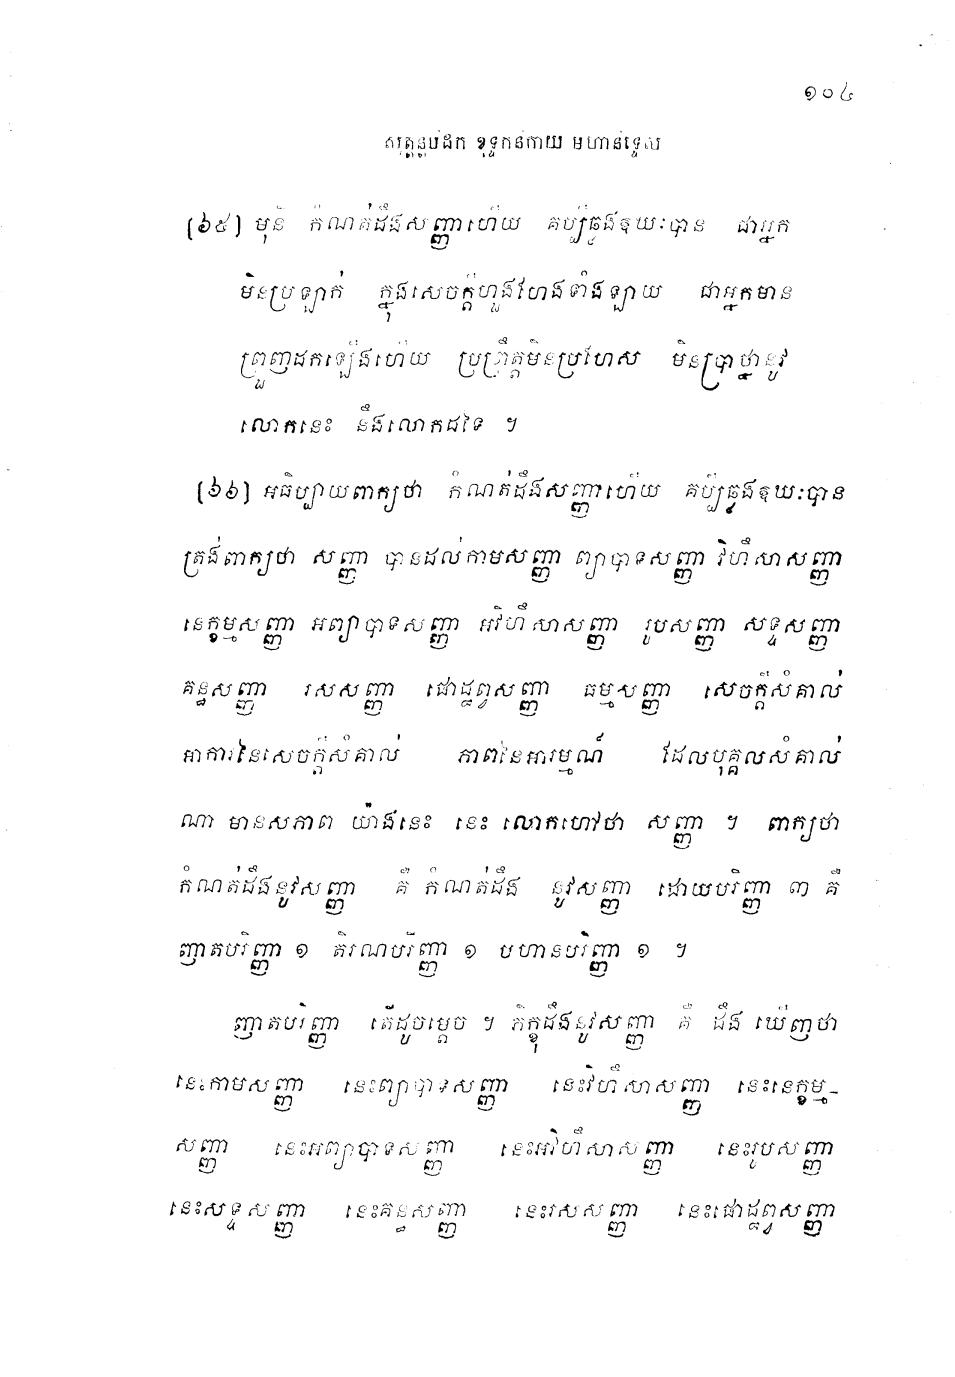 ១០៤
សុត្តន្តបិដក ខុទ្ទកនិកាយ មហានិទ្ទេស
[៦៥] មុនី កំណត់ដឹងសញ្ញាហើយ គប្បីឆ្លងឱឃៈបាន ជាអ្នក
មិនប្រឡាក់ ក្នុងសេចក្តីហួងហែងទាំងឡាយ ជាអ្នកមាន
ព្រួញដកឡើងហើយ ប្រព្រឹត្តមិនប្រហែស មិនប្រាថ្នានូវ
លោកនេះ និងលោកដទៃ ។
[៦៦] អធិប្បាយពាក្យថា កំណត់ដឹងសញ្ញាហើយ គប្បីឆ្លងឱឃៈបាន
ត្រង់ពាក្យថា សញ្ញា បានដល់កាមសញ្ញា ព្យាបាទសញ្ញា វិហឹសាសញ្ញា
នេក្ខម្មសញ្ញា អព្យាបាទសញ្ញា អវិហឹសាសញ្ញា រូបសញ្ញា សទ្ទសញ្ញា
គន្ធសញ្ញា រសសញ្ញា ផោដ្ឋព្វសញ្ញា ធម្មសញ្ញា សេចក្តីសំគាល់
អាការនៃសេចក្តីសំគាល់ ភាពនៃអារម្មណ៍ ដែលបុគ្គលសំគាល់
ណា មានសភាព យ៉ាងនេះ នេះ លោកហៅថា សញ្ញា ។ ពាក្យថា
កំណត់ដឹងនូវសញ្ញា គឺ កំណត់ដឹង នូវសញ្ញា ដោយបរិញ្ញា ៣ គឺ
ញាតបរិញ្ញា ១ តិរណបរិញ្ញា ១ បហានបរិញ្ញា ១ ។
ញាតបរិញ្ញា តើដូចម្តេច ។ ភិក្ខុដឹងនូវសញ្ញា គឺ ដឹង ឃើញថា
នេះកាមសញ្ញា នេះព្យាបាទសញ្ញា នេះវិហឹសាសញ្ញា នេះនេក្ខម្ម-
សញ្ញា នេះអព្យាបាទសញ្ញា នេះអវិហឹសាសញ្ញា នេះរូបសញ្ញា
នេះសទ្ទសញ្ញា នេះគន្ធសញ្ញា នេះរសសញ្ញា នេះផោដ្ឋព្វសញ្ញា